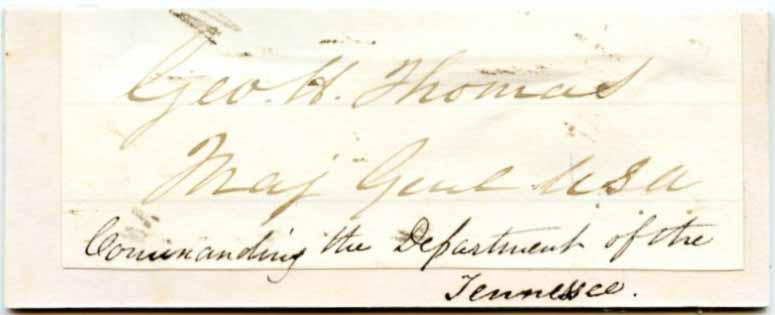 Geo. H. Thomas
Maj Genl USA
Commanding the Department of the
Tennessee.